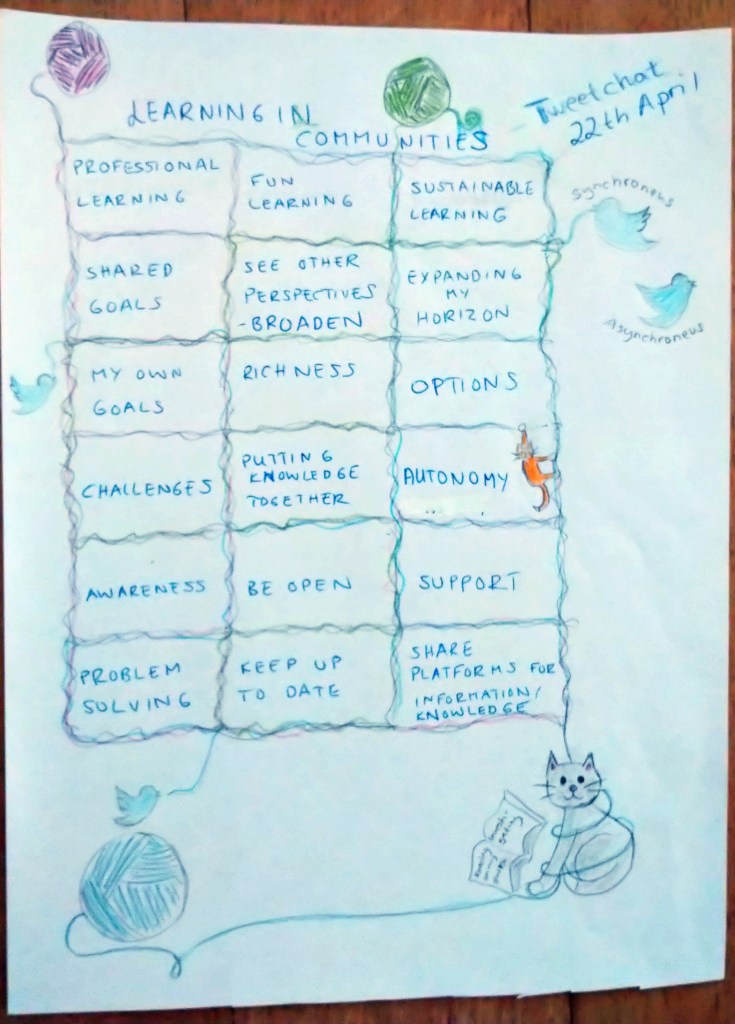 LEARNING IN
COMMUNITIES
Tweetchat
22th April
PROFESSIONAL
LEARNING
FUN
LEARNING
SUSTAINABLE
LEARNING
Synchroneus
Asynchroneus
SHARED
GOALS
SEE OTHER
PERSPECTIVES
-BROADEN
EXPANDING
MY
HORIZON
MY OWN
GOALS
RICHNESS
OPTIONS
CHALLENGES
PUTTING
KNOWLEDGE
TOGETHER
AUTONOMY
AWARENESS
BE OPEN
SUPPORT
PROBLEM
SOLVING
KEEP UP
TO DATE
SHARE
PLATFORMS FOR
INFORMATION/
KNOWLEDGE